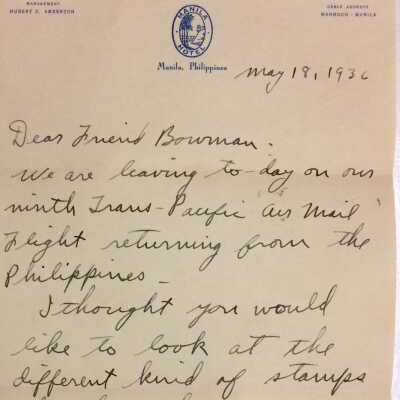 MANAGEMENT
HUBERT E. ANDERSON
MANILA
HOTEL
CABLE ADDRESS
MANHOCO - MANILA
Manila, Philippines
May 18, 1936
Dear Friend Bowman.
We are leaving to-day on our
ninth Trans-Pacific "Air Mail"
Flight returning from the
Philippines -
I thought you would
like to look at the
different kind of stamps